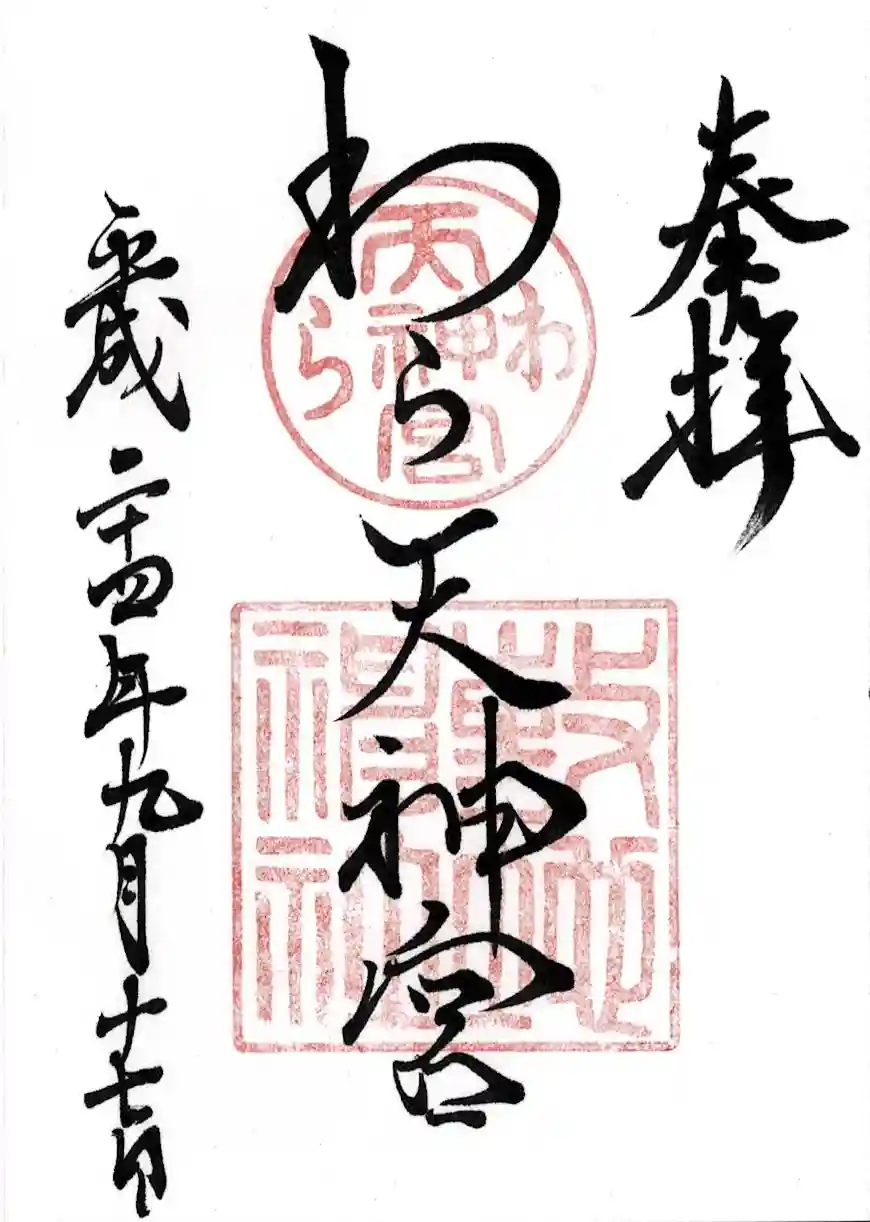 奉拝
わら天神宮
平成二十四年九月十七日
わら天神宮